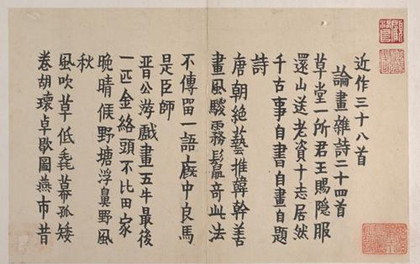 近作三十八首
論畫雜詩二十四首
草堂一所君王賜隱服
還山送老資十志居然
千古事自書自畫自題
詩
唐朝絶藝推韓幹善
畫風騣霧鬣奇此法
不傳留一語廄中良馬
是臣師
晉公游戲畫五牛最後
一匹金絡頭不比田家
晚晴候野塘浮鼻野風
秋
風吹草低毳幕孤矮
卷胡瓌卓歇圖燕市昔